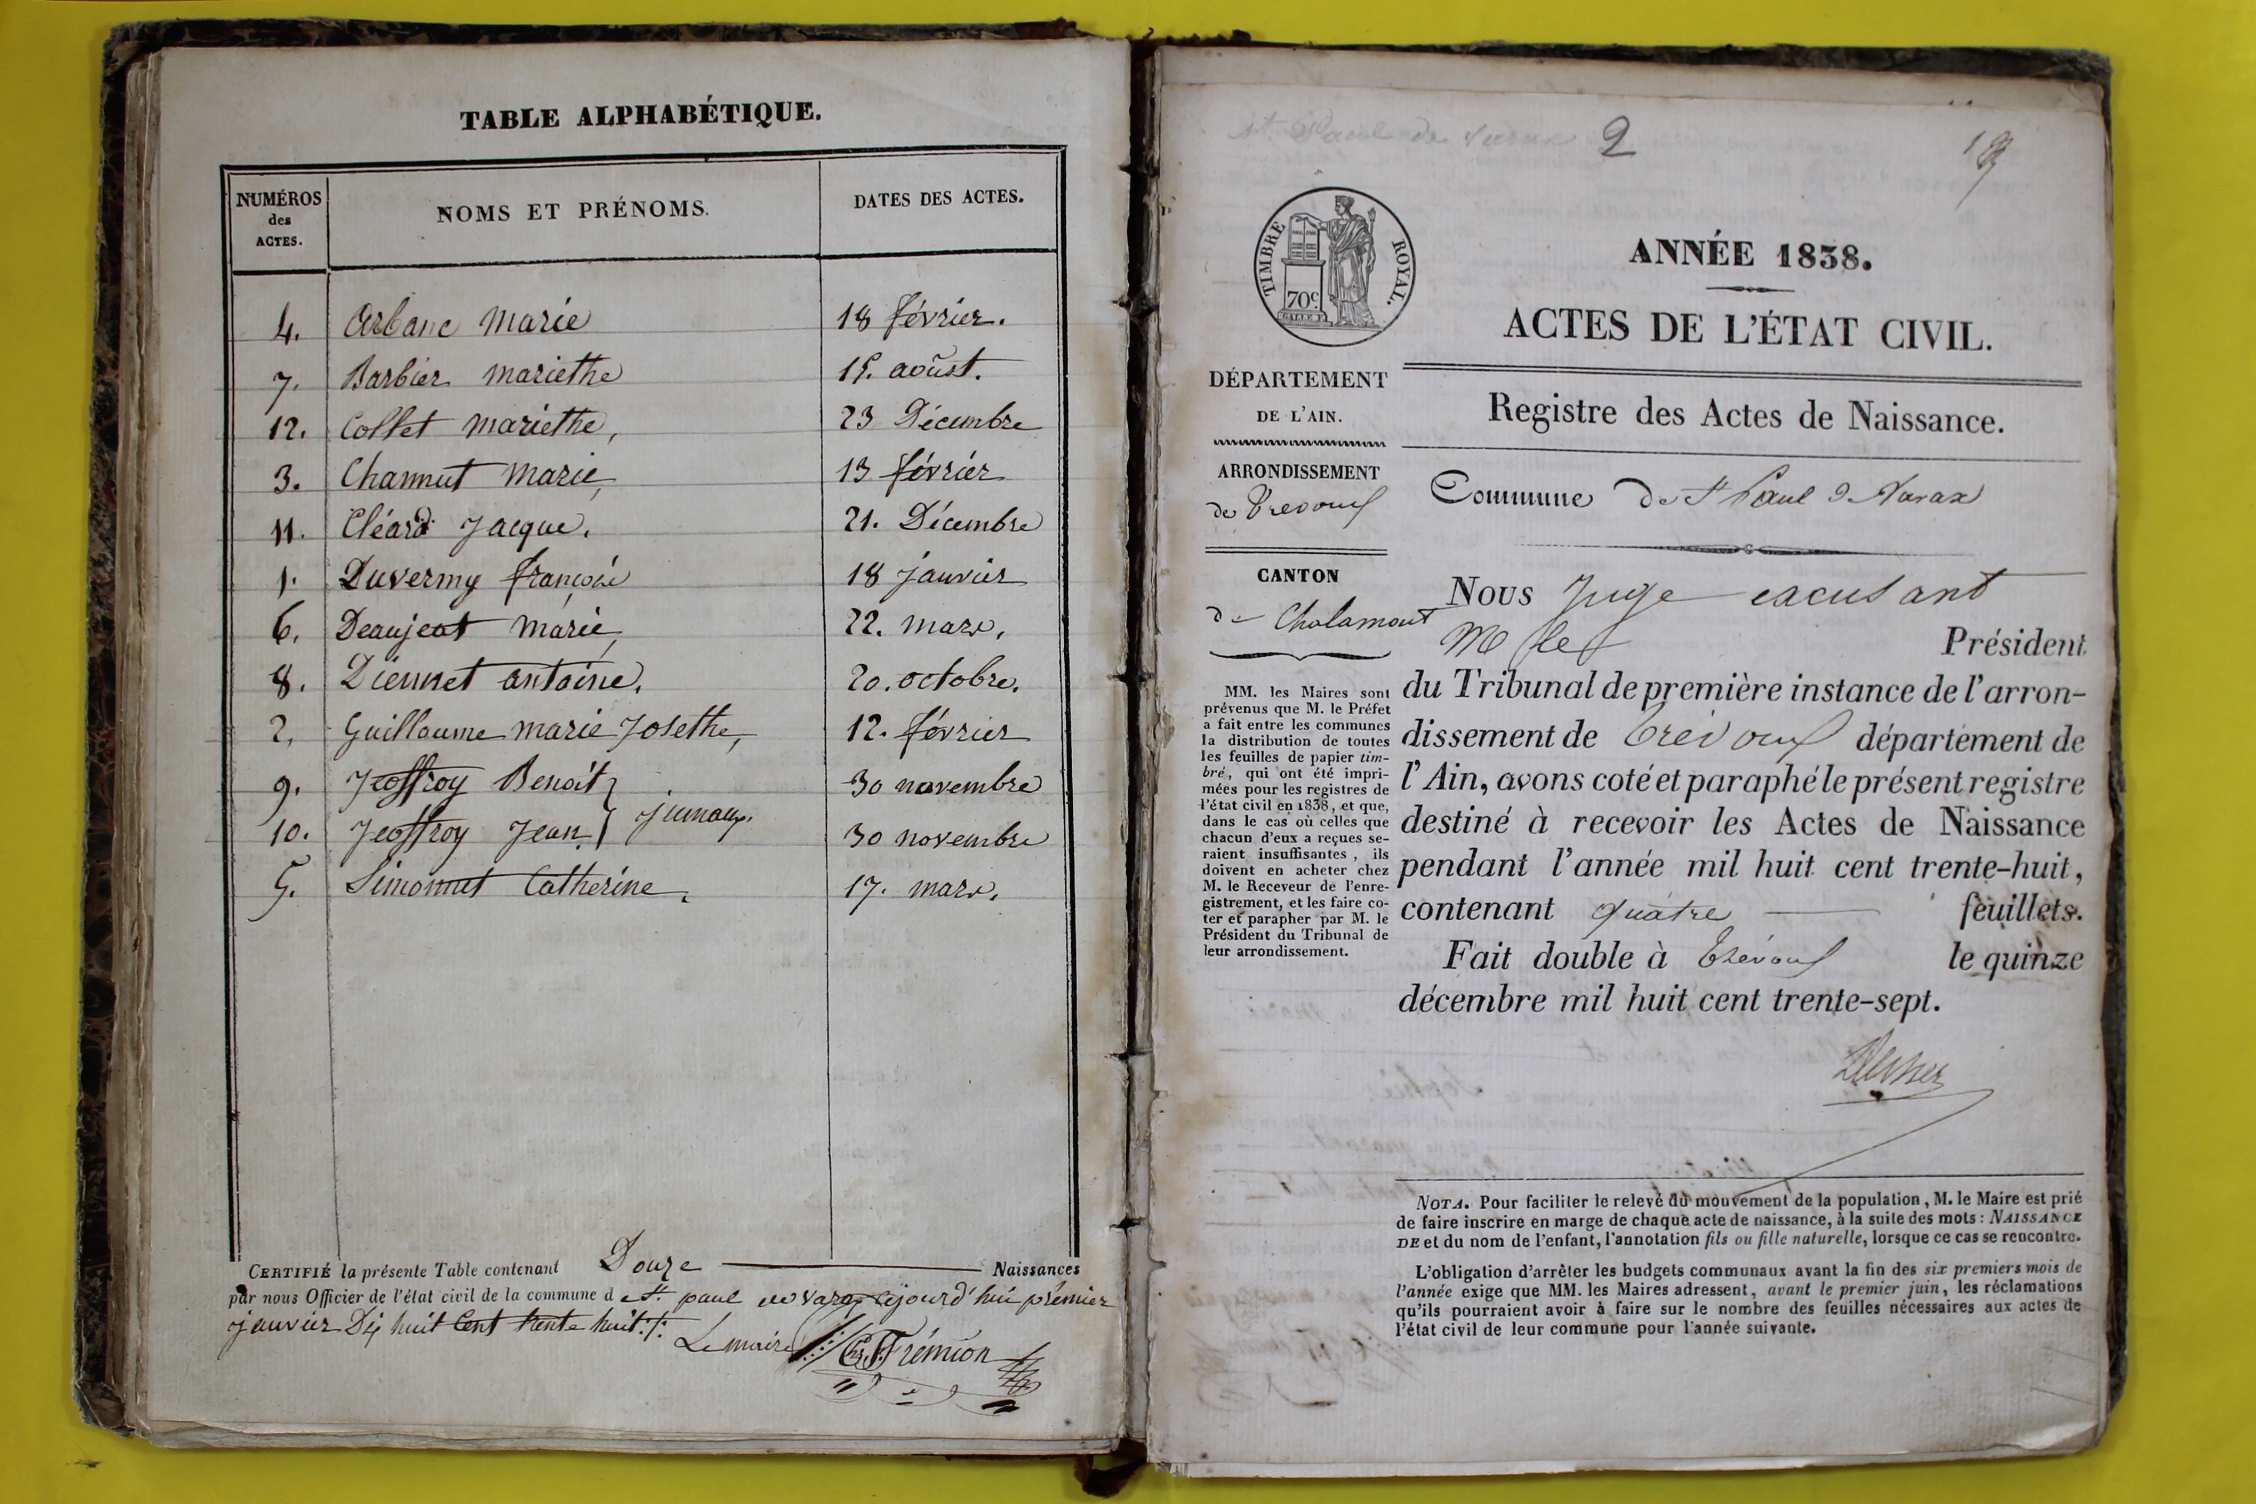 TABLE ALPHABÉTIQUE.
NUMÉROS
des
ACTES.
NOMS ET PRÉNOMS.
DATES DES ACTES.
4. Arbanc Marie 18 février.
7. Barbier mariethe 15. août.
12. Collet Mariethe, 23 Décembre
3. Channut Marie, 13 février
11. Cléard Jacque. 21. Décembre
1. Duvermy françoise 18 janvier
6. Deaujeat Marie, 22. mars.
8. Diennet antoine. 20. octobre.
2, Guillaume marie Josethe, 12. février
9. Jeoffroy Benoit 30 novembre
jumaux.
10. Jeoffroy Jean 30 novembre
5. Simonnut Catherine. 17. mars.
CERTIFIÉ la présente Table contenant Douze Naissances
par nous Officier de l'état civil de la commune d e St. paul de varax ajourd'hui premier
janvier Dix huit Cent trente huit
Le maire Frémion
2
ANNÉE 1838.
TIMBRE ROYAL.
70c.
ACTES DE L'ÉTAT CIVIL.
DÉPARTEMENT
DE L'AIN.
Registre des Actes de Naissance.
ARRONDISSEMENT
de Trevoux
Commune De St Paul de Varax
CANTON
de Chalamont
Nous Juge
Président
du Tribunal de première instance de l'arron-
dissement de Trévoux département de
l'Ain, avons coté et paraphé le présent registre
destiné à recevoir les Actes de Naissance
pendant l'année mil huit cent trente-huit,
contenant quatre feuillets.
Fait double à Trévoux le quinze
décembre mil huit cent trente-sept.
MM. les Maires sont
prévenus que M. le Préfet
a fait entre les communes
la distribution de toutes
les feuilles de papier tim-
bré, qui ont été impri-
mées pour les registres de
l'état civil en 1838, et que,
dans le cas où celles que
chacun d'eux a reçues se-
raient insuffisantes, ils
doivent en acheter chez
M. le Receveur de l'enre-
gistrement, et les faire co-
ter et parapher par M. le
Président du Tribunal de
leur arrondissement.
NOTA. Pour faciliter le relevé du mouvement de la population, M. le Maire est prié
de faire inscrire en marge de chaque acte de naissance, à la suite des mots : NAISSANCE
DE et du nom de l'enfant, l'annotation fils ou fille naturelle, lorsque ce cas se rencontre.
L'obligation d'arrêter les budgets communaux avant la fin des six premiers mois de
l'année exige que MM. les Maires adressent, avant le premier juin, les réclamations
qu'ils pourraient avoir à faire sur le nombre des feuilles nécessaires aux actes de
l'état civil de leur commune pour l'année suivante.